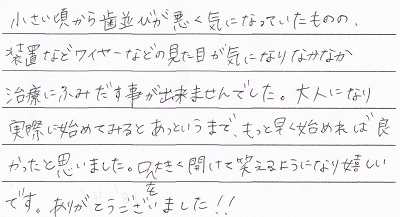 小さい頃から歯並びが悪く気になっていたものの、
装置などワイヤーなどの見た目が気になりなかなか
治療にふみだす事が出来ませんでした。大人になり
実際に始めてみるとあっというまで、もっと早く始めれば良
かったと思いました。口を大きく開けて笑えるようになり嬉しい
です。ありがとうございました!!